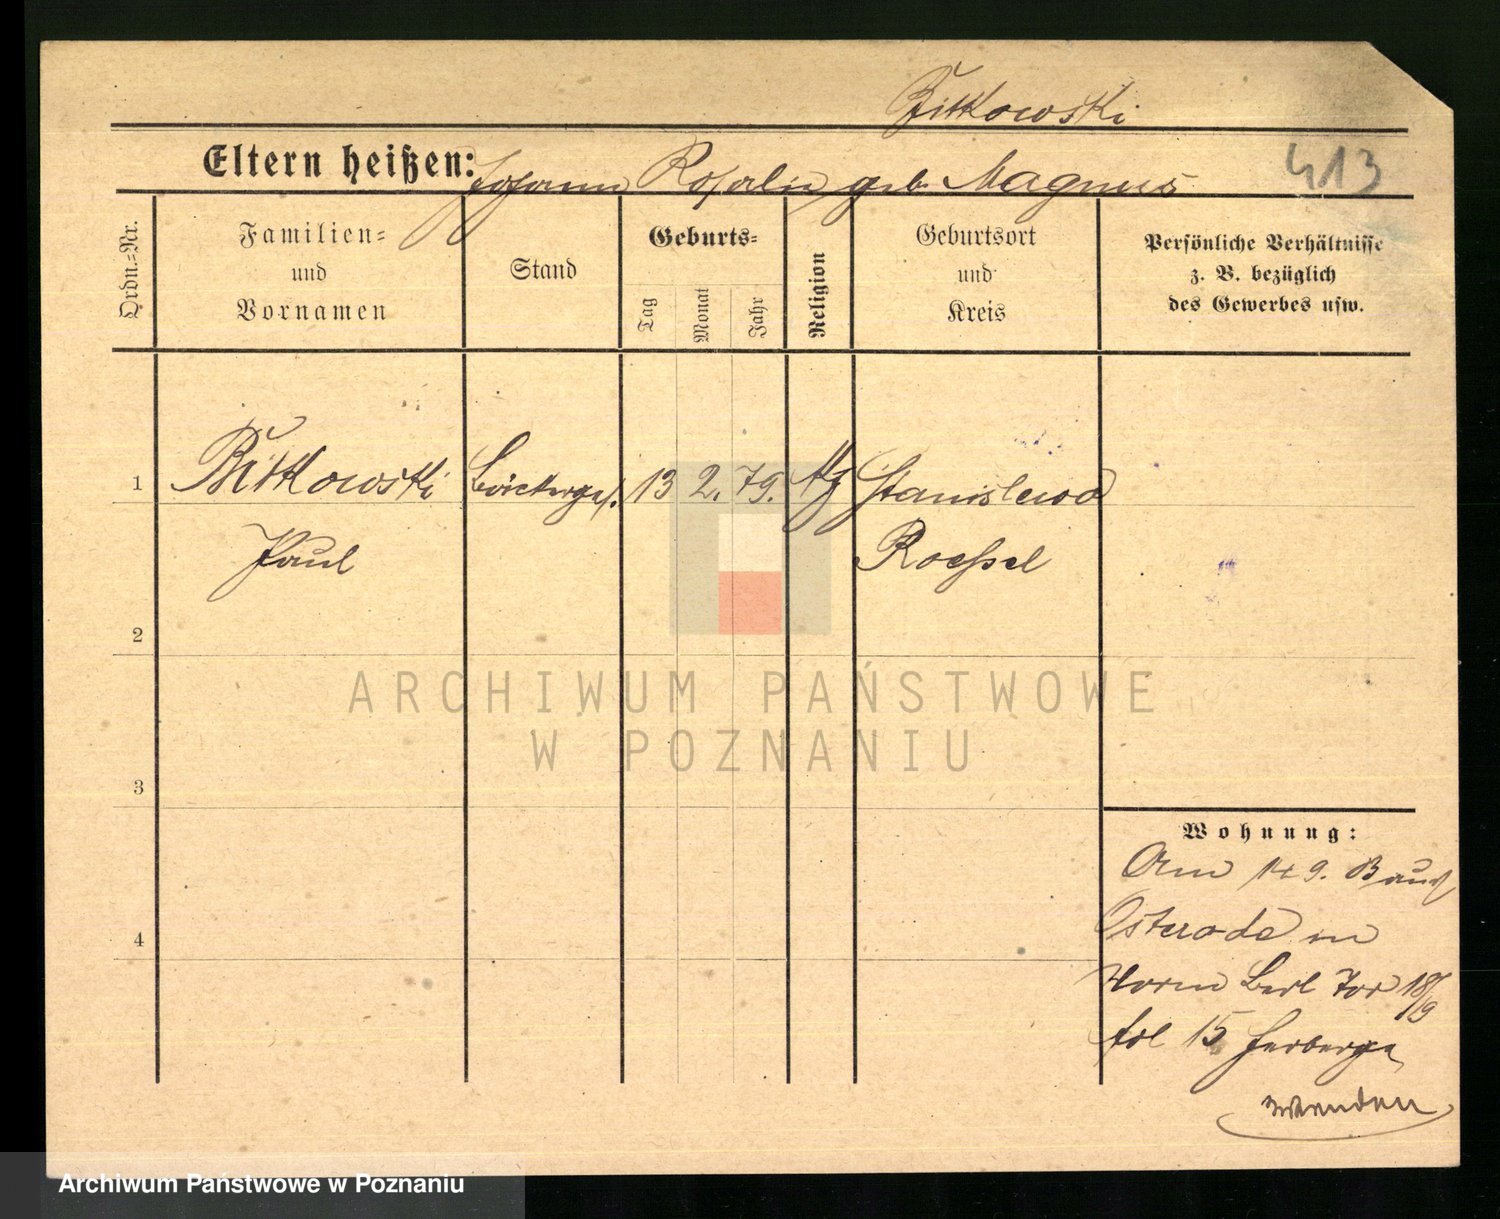 Bitkowski
Eltern heißen: Johann Rosalie geb. Magnus
413
Ordn.-Nr.
Familien-
und
Vornamen
Stand
Geburts-
Tag
Monat
Jahr
Religion
Geburtsort
und
Kreis
Persönliche Verhältnisse
z. B. bezüglich
des Gewerbes usw.
1 Bitkowski Bäckerges. 13 2. 79. Stanislewo
Paul Roessel
2
ARCHIWUM PAŃSTWOWE
W POZNANIU
3
Wohnung:
Am 14 9. B aus
Osterode in
Vorm Berl Tor 18/9
fol 15 Herberge
wenden
4
Archiwum Państwowe w Poznaniu